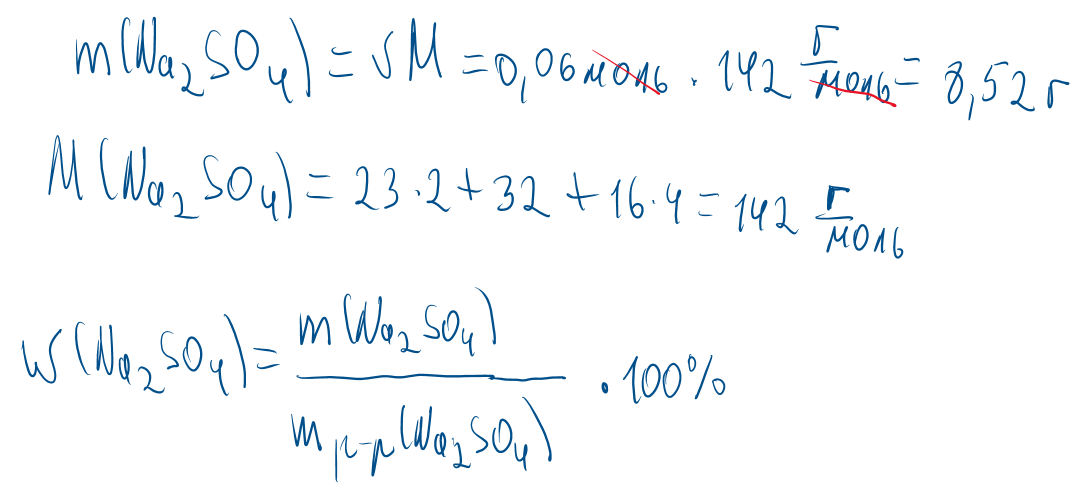 m(Na₂SO₄) = νM = 0,06 моль · 142 г/моль = 8,52 г
M(Na₂SO₄) = 23·2 + 32 + 16·4 = 142 г/моль
w(Na₂SO₄) = m(Na₂SO₄) / m р-р(Na₂SO₄) · 100%